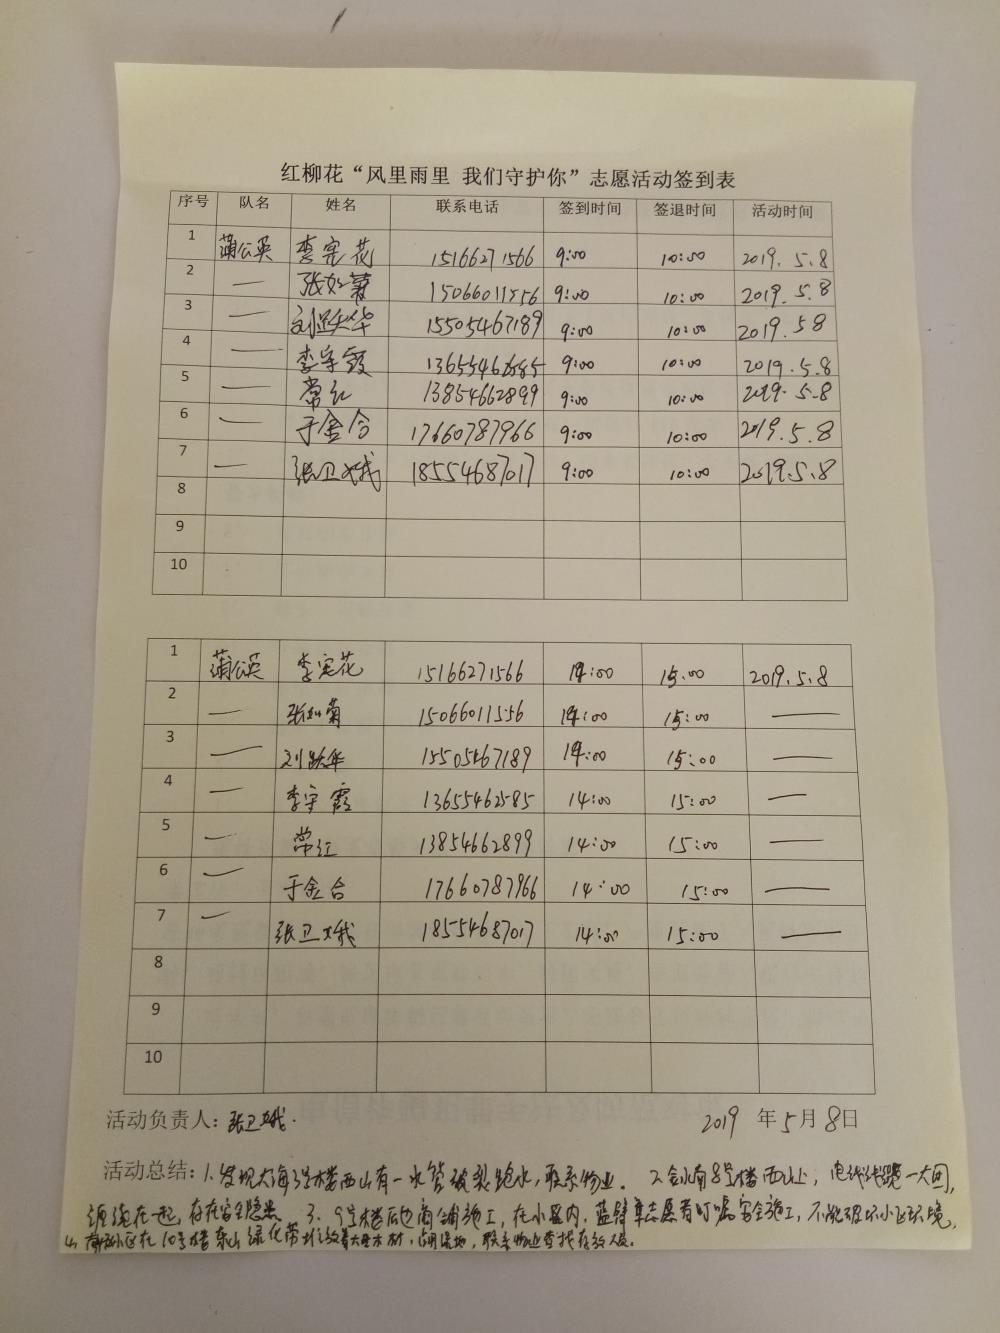 红柳花“风里雨里 我们守护你”志愿活动签到表
序号 队名 姓名 联系电话 签到时间 签退时间 活动时间
1 蒲公英 李宪花 15166271566 9:00 10:00 2019.5.8
2 — 张如菊 15066011556 9:00 10:00 2019.5.8
3 — 刘跃华 15505467189 9:00 10:00 2019.58
4 — 李守霞 13655462585 9:00 10:00 2019.5.8
5 — 常红 13854662899 9:00 10:00 2019.5.8
6 — 于金合 17660787966 9:00 10:00 2019.5.8
7 — 张卫娥 18554687017 9:00 10:00 2019.5.8
8
9
10
1 蒲公英 李宪花 15166271566 14:00 15:00 2019.5.8
2 — 张如菊 15066011556 14:00 15:00 —
3 — 刘跃华 15505467189 14:00 15:00 —
4 — 李守霞 13655462585 14:00 15:00 —
5 — 常红 13854662899 14:00 15:00 —
6 — 于金合 17660787966 14:00 15:00 —
7 — 张卫娥 18554687017 14:00 15:00 —
8
9
10
活动负责人：张卫娥. 2019 年5月8日
活动总结：1.发现大海 楼西山有一水管破裂跑水，联系物业。 2. 南8号楼西山上，电线线缆一大团，
缠绕在一起，存在安全隐患 3、9号楼 商铺施工，在小区内，蓝臂章志愿者叮嘱安全施工，不能破坏小区环境，
4、 小区在10号楼东山绿化带堆放着大量木材，占用绿地，联系物业查找存放人员。